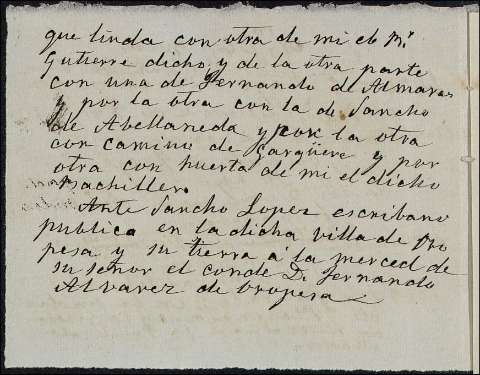 que linda con otra de mi el d M.r
Gutierre dicho, y de la otra parte
con una de Fernando de Almaras
y por la otra con la de Sancho
de Abellaneda y por la otra
con camino de y por
otra con huerta de mi el dicho
Bachiller.
Ante Sancho Lopez escribano
publico en la dicha villa de Oro
pesa y su tierra á la merced de
su señor el conde D. Fernando
Alvarez de Oropesa